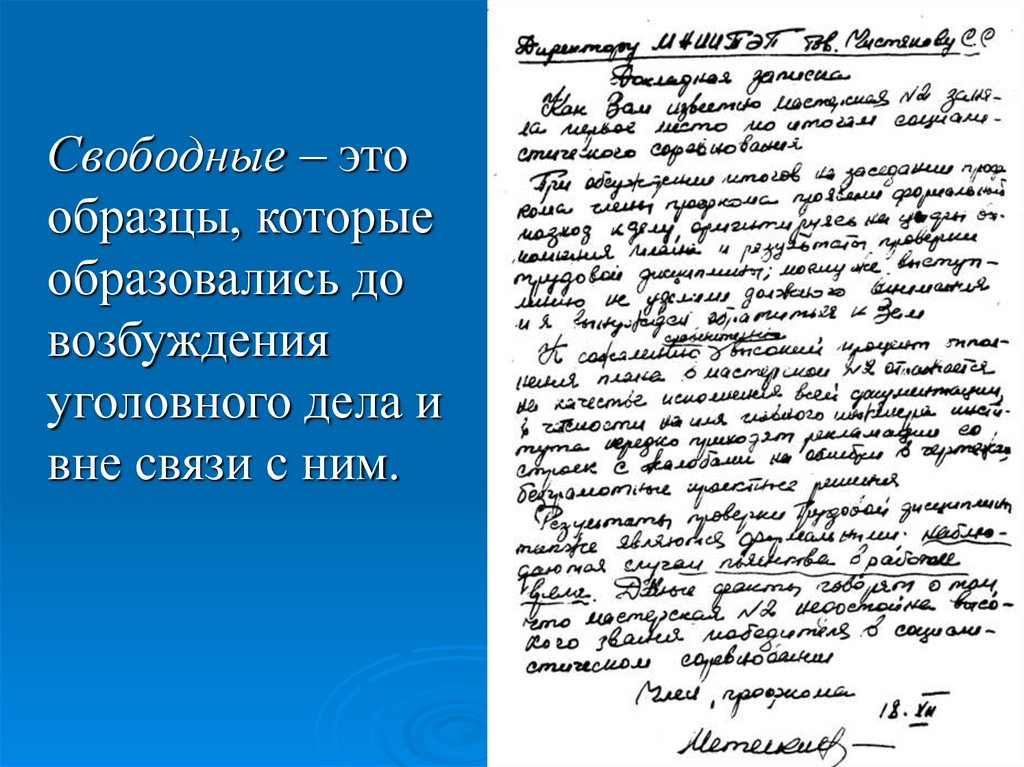 Свободные – это
образцы, которые
образовались до
возбуждения
уголовного дела и
вне связи с ним.
Директору МНИИТЭП тов. Чистякову С.С
Докладная записка
Как Вам известно мастерская №2 заня-
ла первое место по итогам социали-
стического соревнования
При обсуждении итогов на заседании проф-
кома члены профкома проявили формальный
подход к делу, ориентируясь на цифры вы-
полнения плана и результаты проверки
трудовой дисциплины; моему же выступ-
лению не уделили должного внимания
и я вынужден обратиться к Вам
сравнительно
К сожалению высокий процент выпол-
нения плана в мастерской №2 отражается
на качестве исполнения всей документации,
в частности на имя главного инженера инсти-
тута нередко приходят рекламации со
строек с жалобами на ошибки в чертежах,
безграмотные проектные решения
Результаты проверки трудовой дисциплины
также являются формальными. наблю-
даются случаи пьянства в рабочее
время. Данные факты говорят о том,
что мастерская №2 недостойна высо-
кого звания победителя в социали-
стическом соревновании
Член профкома
18.XII